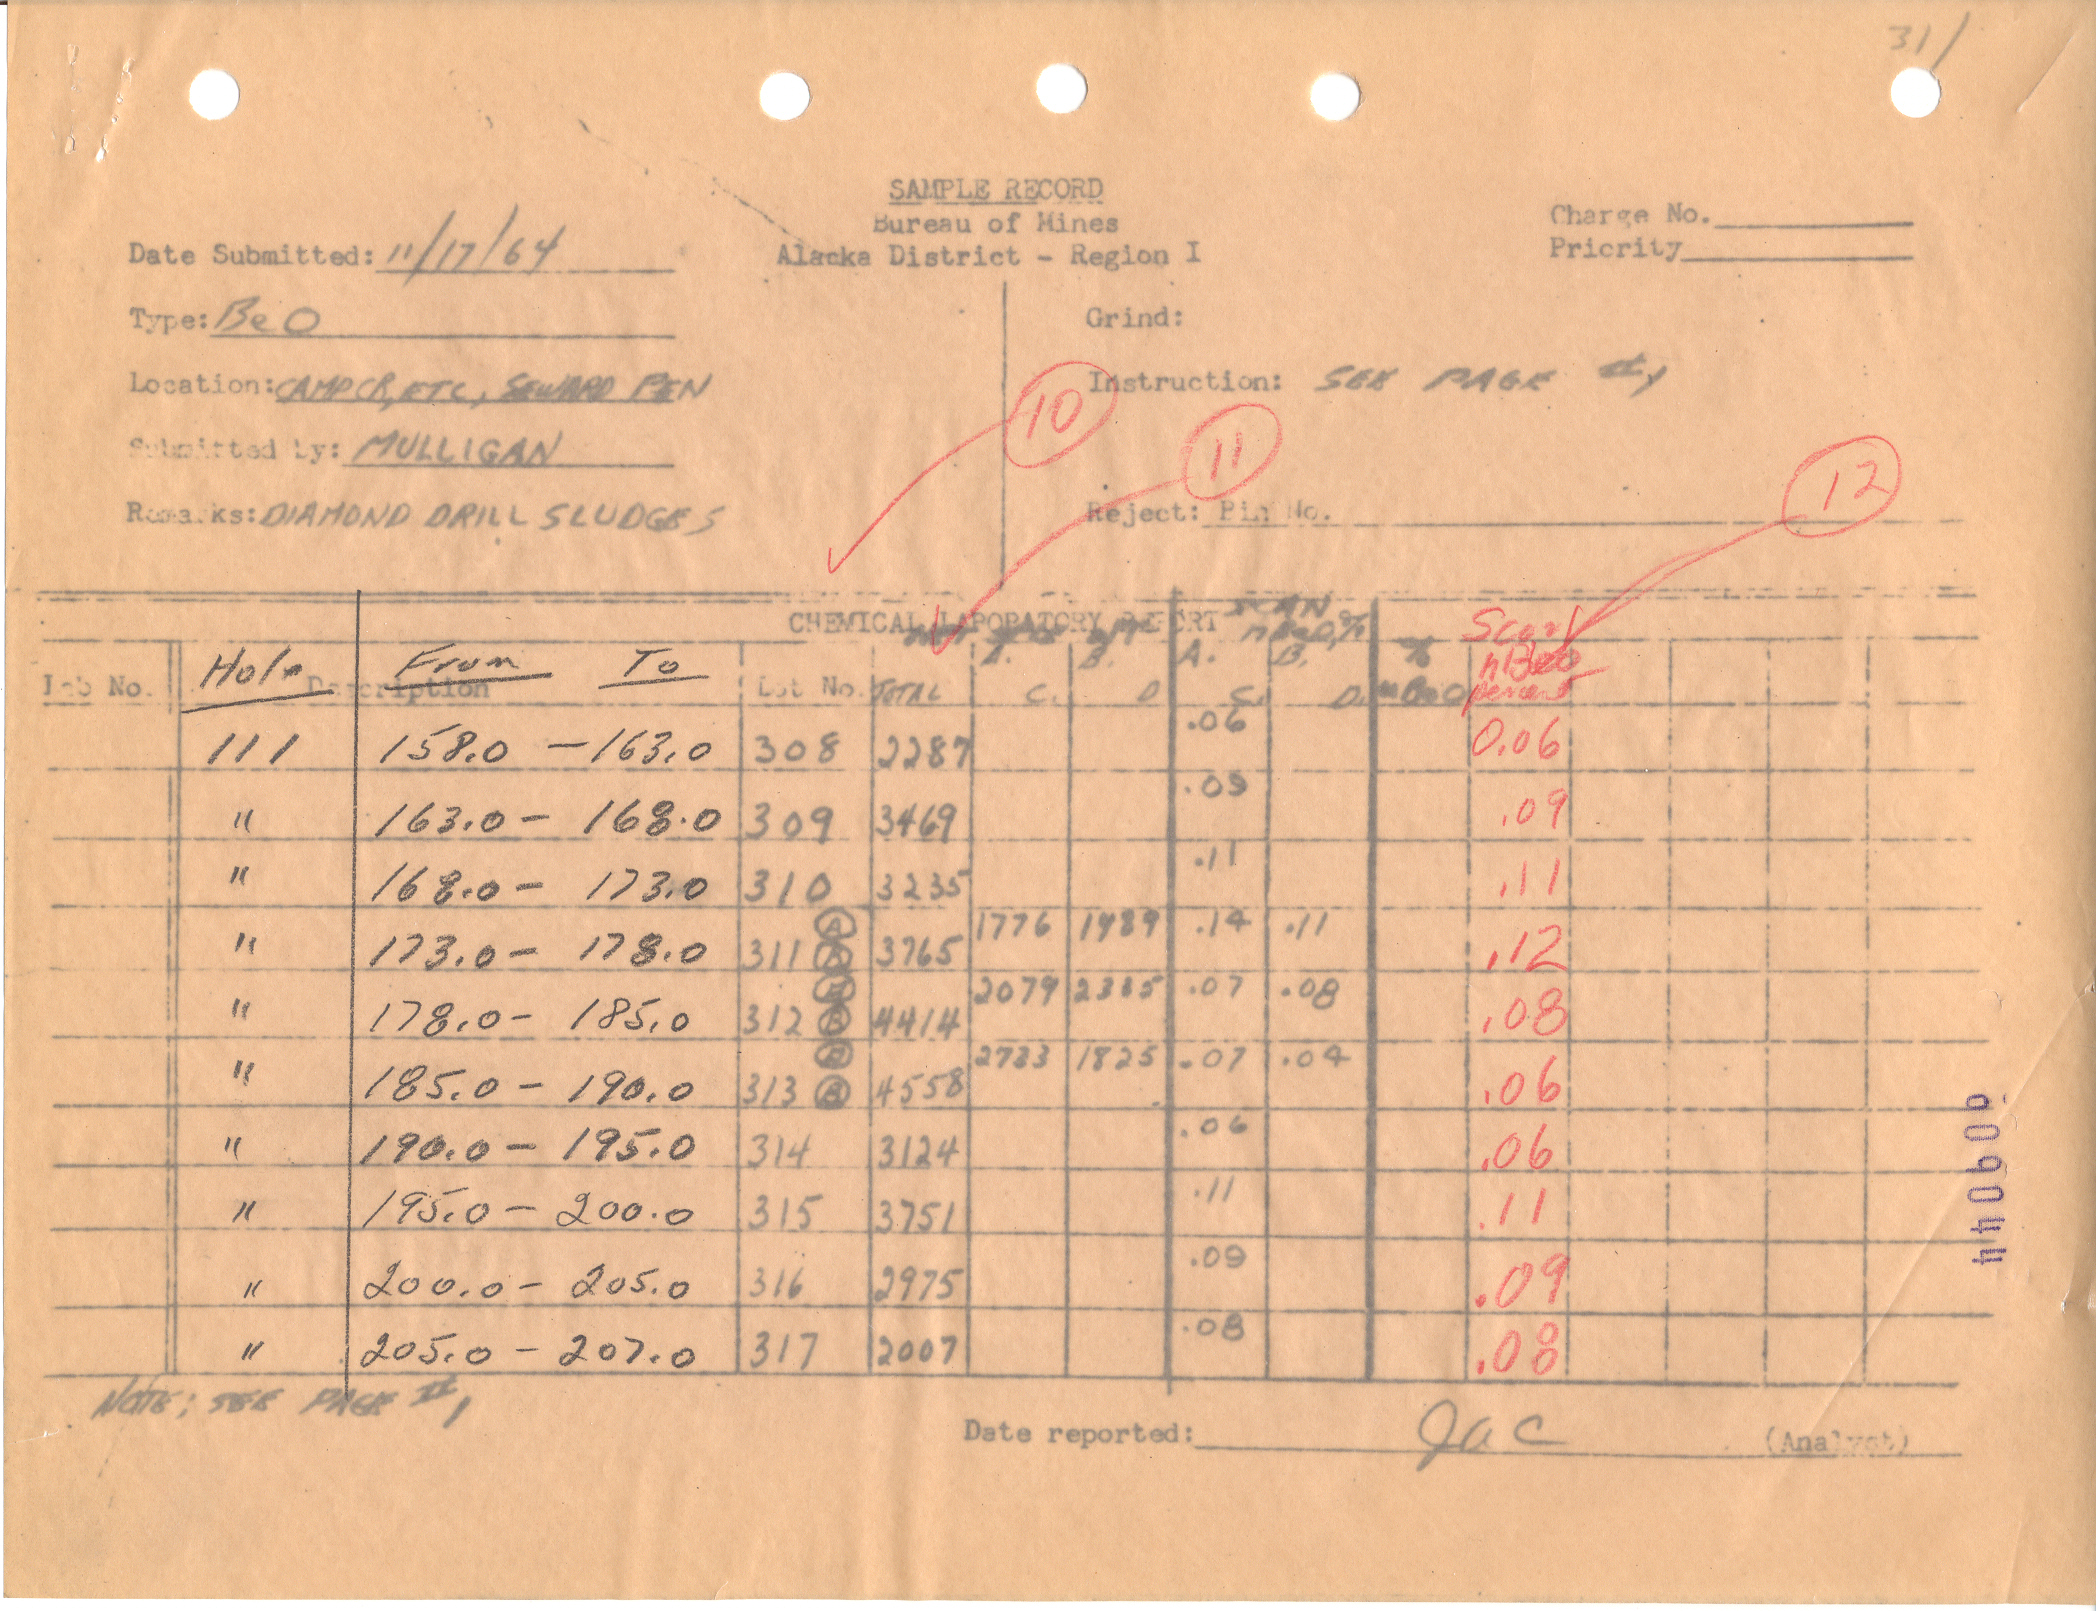 31/
SAMPLE RECORD
Bureau of Mines
Alaska District - Region I
Charge No.
Priority
Date Submitted: 11/17/64
Type: BeO
Grind:
Location: CAMP CR, ETC, SEWARD PEN
Instruction: SEE PAGE #1
10
11
12
Submitted by: MULLIGAN
Remarks: DIAMOND DRILL SLUDGES
Reject: Bin No.
CHEMICAL LABORATORY REPORT
SCAN
n BeO, %
Lab No. Hole Description From To Lot No. TOTAL A. B. C. D A. B. C. D. % BeO Scan nBeO percent
111 158.0 - 163.0 308 2287 .06 0.06
" 163.0 - 168.0 309 3469 .09 .09
" 168.0 - 173.0 310 3235 .11 .11
" 173.0 - 178.0 311 3765 1776 1989 .14 .11 .12
" 178.0 - 185.0 312 4414 2079 2335 .07 .08 .08
" 185.0 - 190.0 313 4558 2733 1825 .07 .04 .06
" 190.0 - 195.0 314 3124 .06 .06
" 195.0 - 200.0 315 3751 .11 .11
" 200.0 - 205.0 316 2975 .09 .09
" 205.0 - 207.0 317 2007 .08 .08
NOTE: SEE PAGE #1
Date reported: JAC (Analyst)